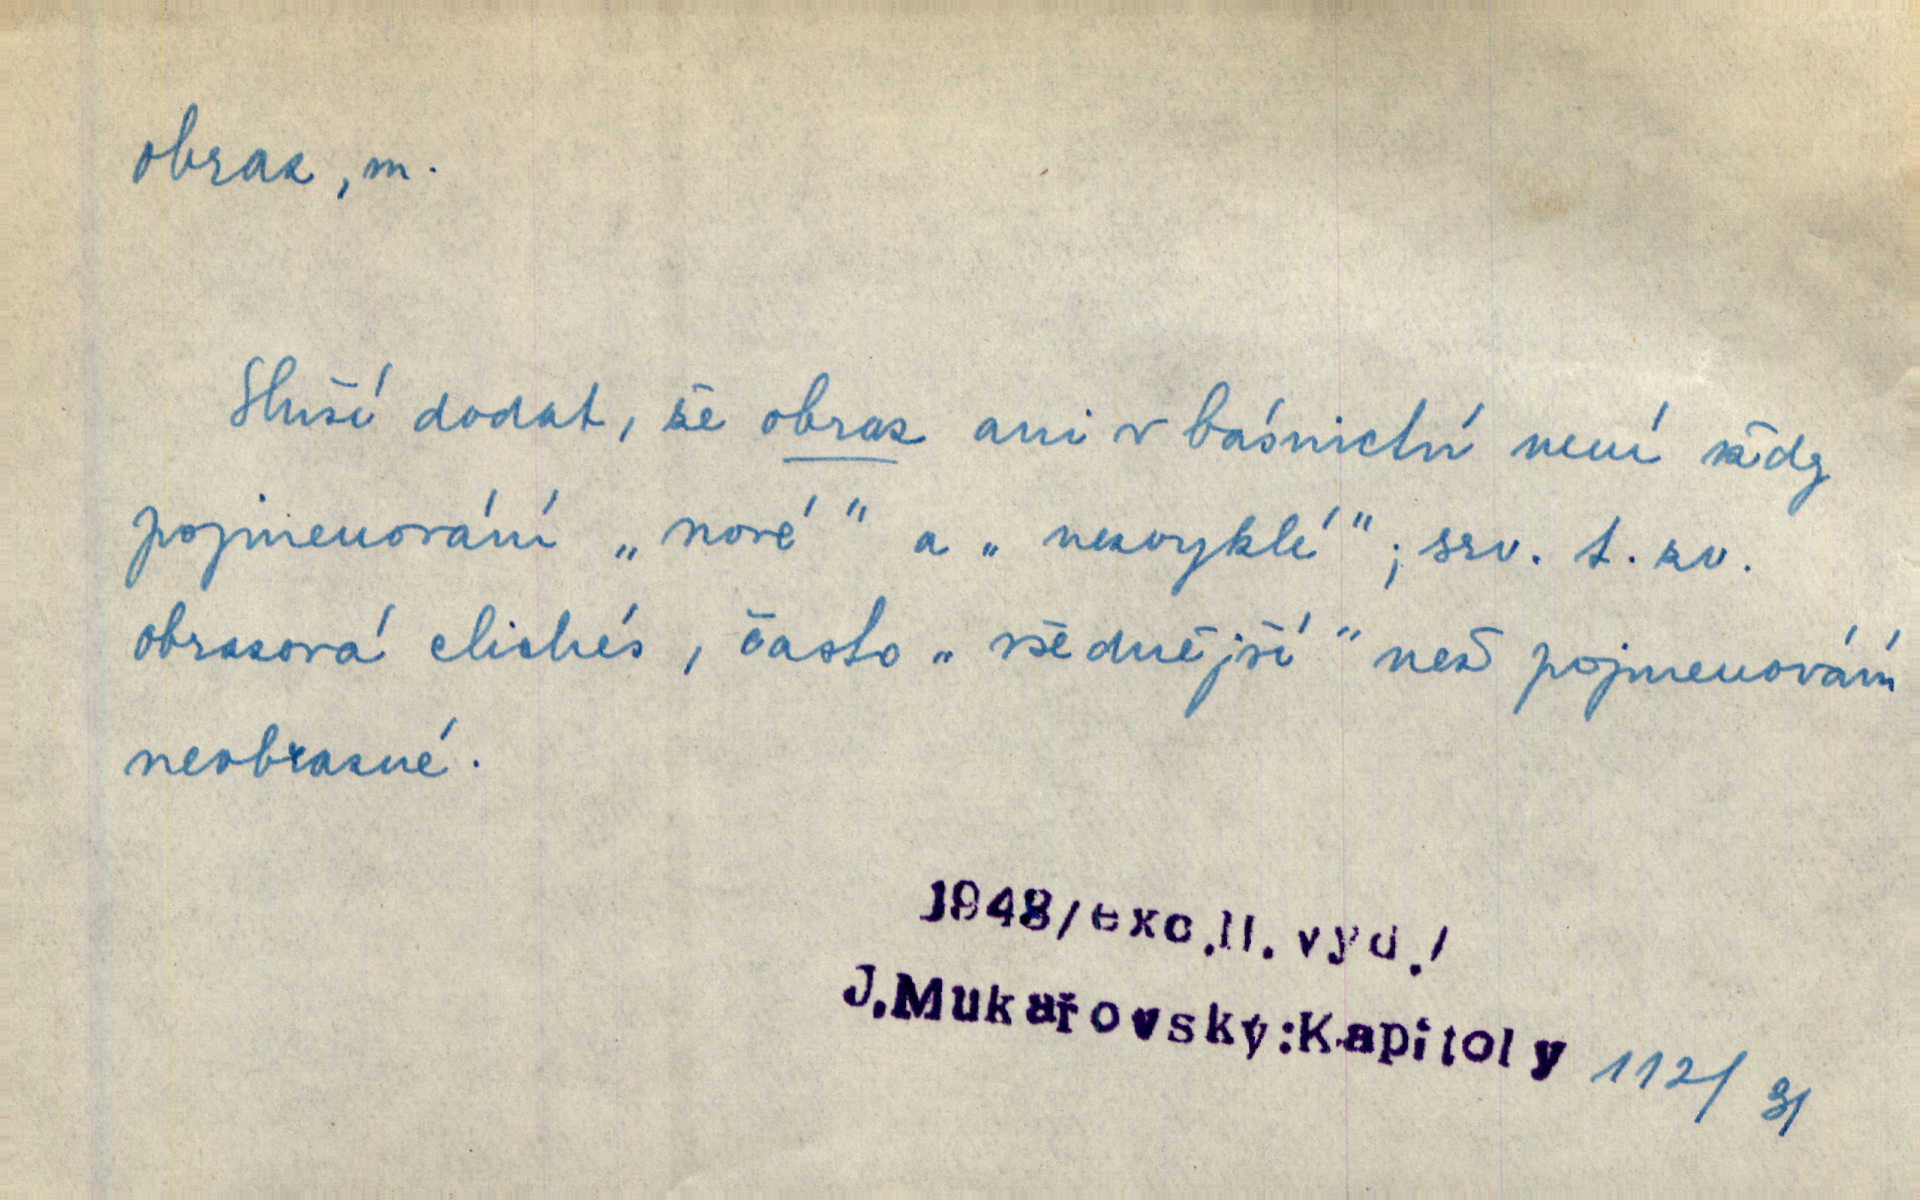 obraz, m.
Sluší dodat, že obraz ani v básnictví není vždy
pojmenování „nové" a „nezvyklé"; srv. t. zv.
obrazová clichés, často „všednější" než pojmenování
neobrazné.
1948/exc.II.vyd./
J.Mukařovský:Kapitoly 112/